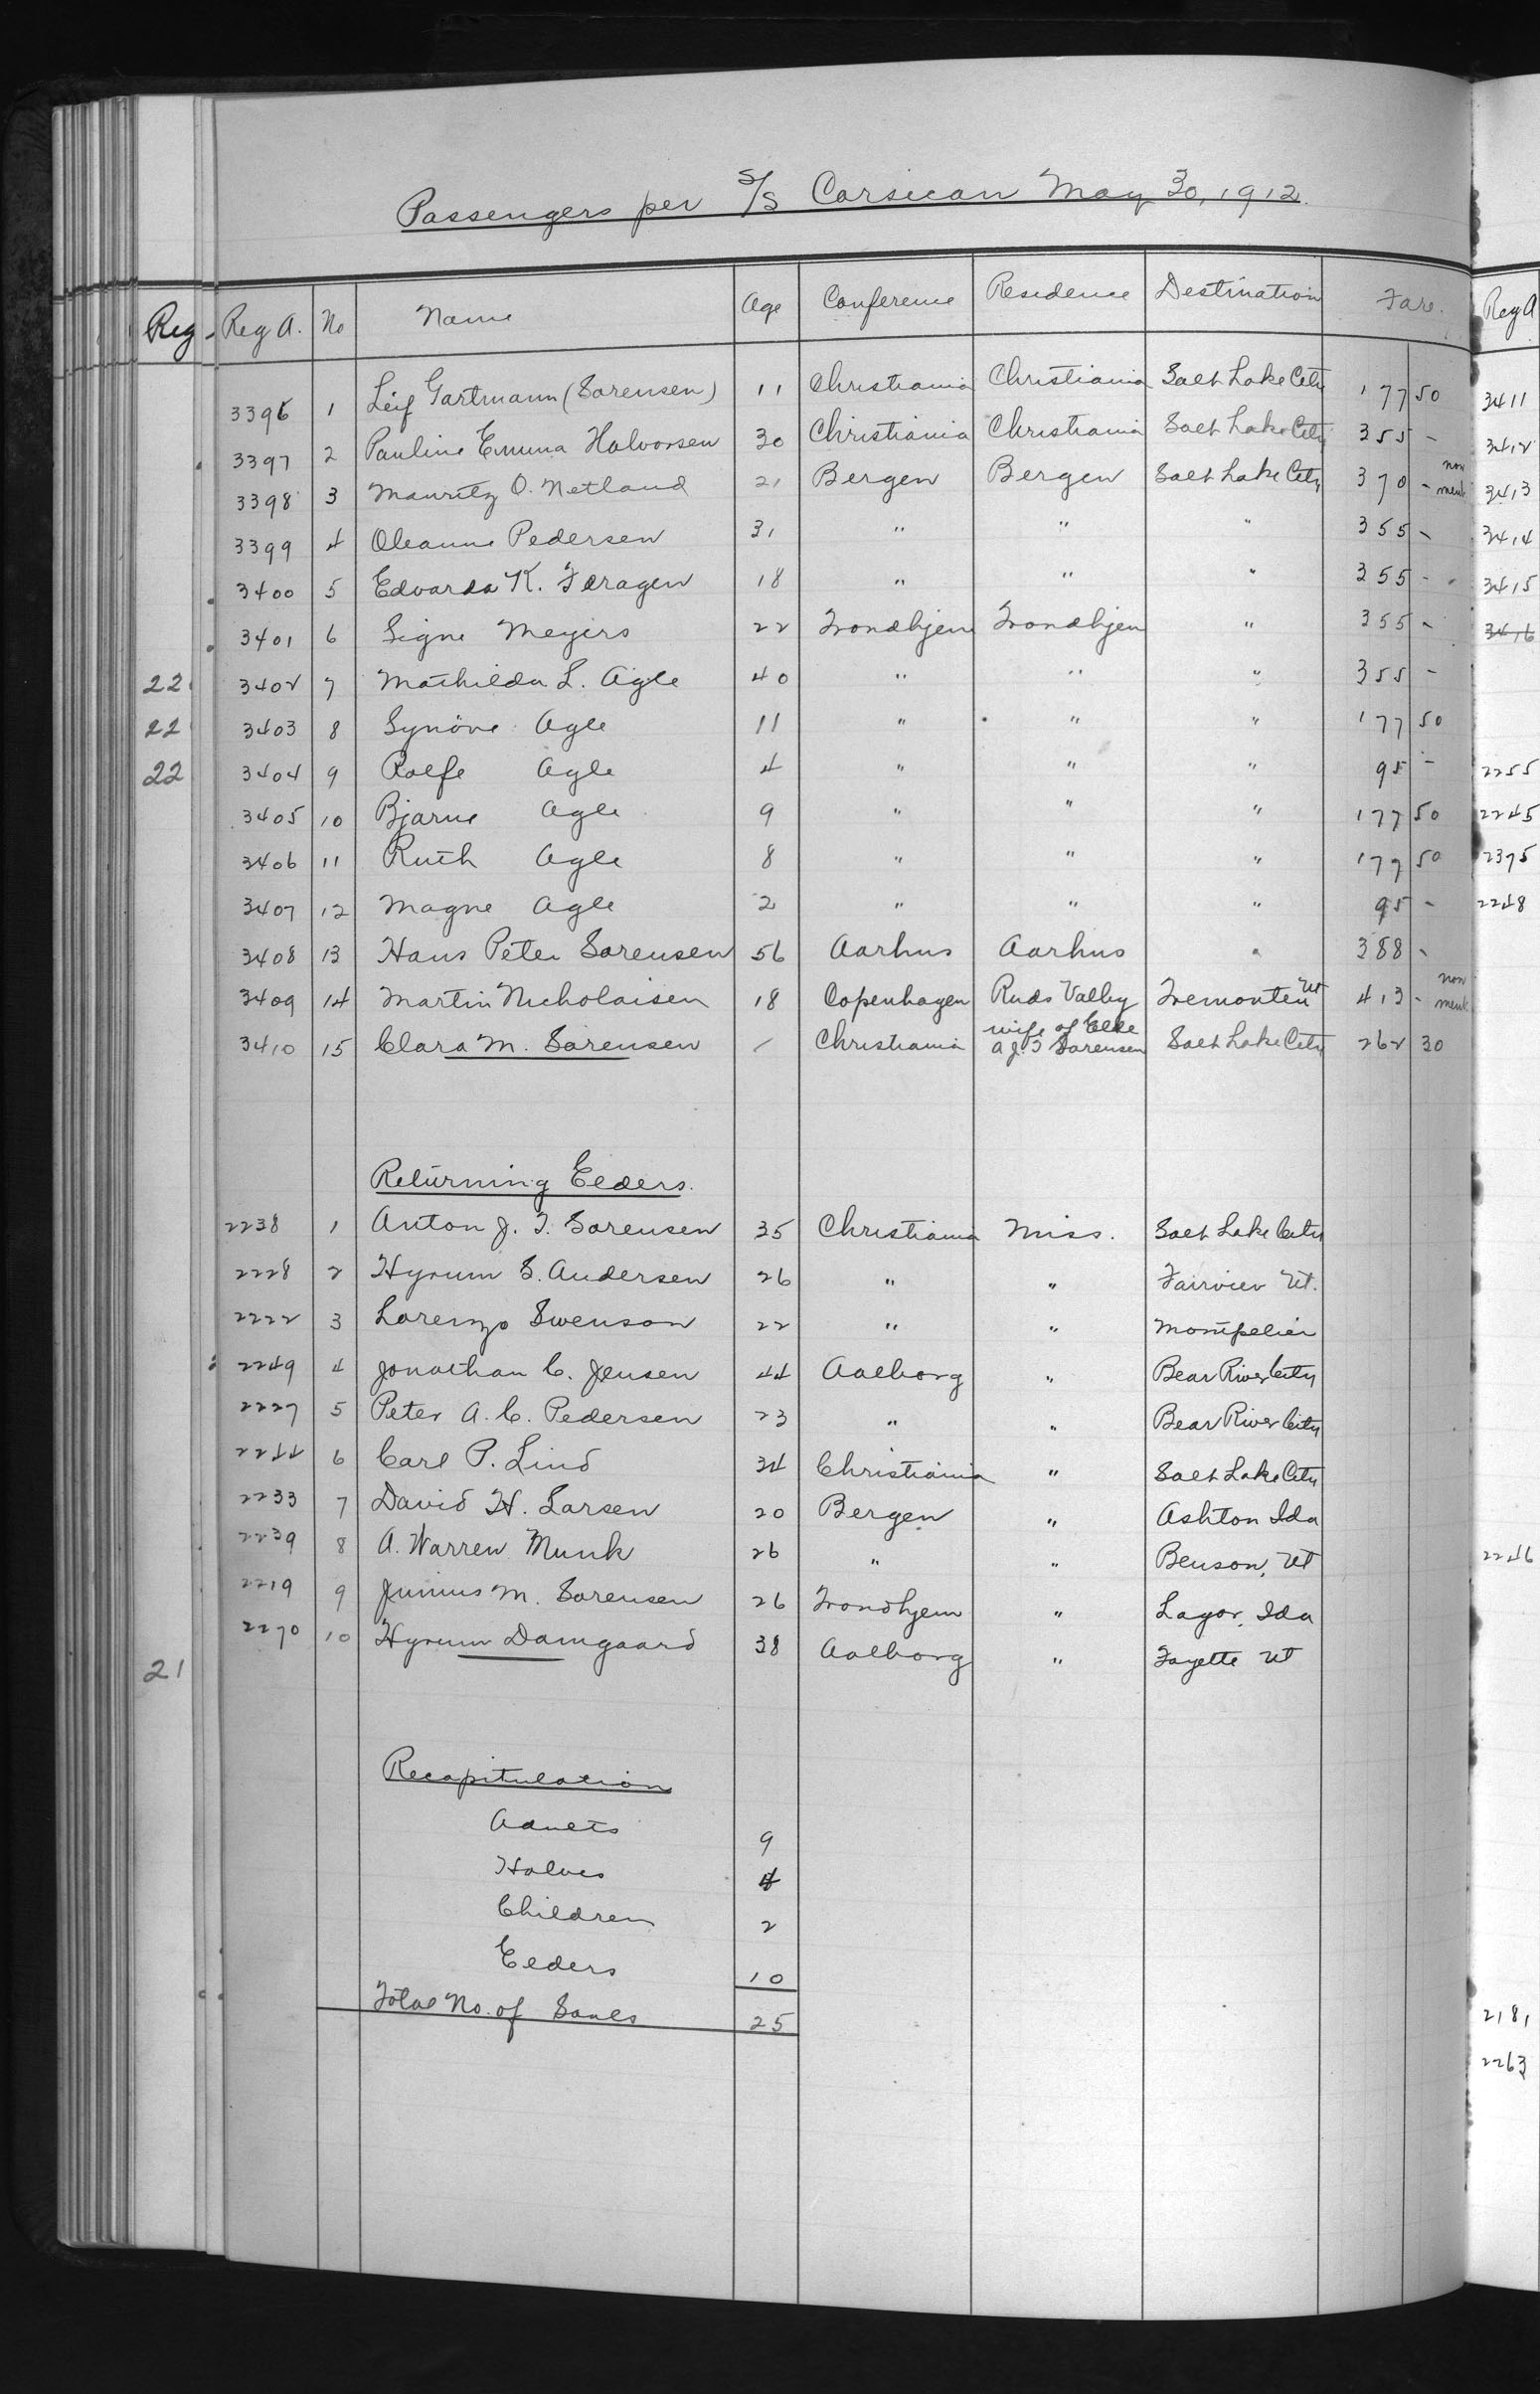 Passengers per S/S Corsican May 30, 1912.
Reg. Reg A. No Name Age Conference Residence Destination Fare. Reg A
3396 1 Leif Gartmann (Sorensen) 11 Christiania Christiania Salt Lake City 177 50 3411
3397 2 Pauline Emma Halvorsen 30 Christiania Christiania Salt Lake City 355 - 3412
3398 3 Mauritz O. Netland 21 Bergen Bergen Salt Lake City 370 - non memb. 3413
3399 4 Oleanne Pedersen 31 " " " 355 - 3414
3400 5 Edvarda K. Foragen 18 " " " 355 - 3415
3401 6 Signe Meyers 22 Trondhjem Trondhjem " 355 - 3416
22 3402 7 Mathilda L. Agle 40 " " " 355 -
22 3403 8 Synöve Agle 11 " " " 177 50
22 3404 9 Rolfe Agle 4 " " " 95 - 2255
3405 10 Bjarne Agle 9 " " " 177 50 2245
3406 11 Ruth Agle 8 " " " 177 50 2375
3407 12 Magne Agle 2 " " " 95 - 2248
3408 13 Hans Peter Sorensen 56 Aarhus Aarhus " 388 -
3409 14 Martin Nicholaisen 18 Copenhagen Ruds Valby Tremonten Ut 413 - non memb.
3410 15 Clara M. Sorensen / Christiania wife of Elde A J. T Sorensen Salt Lake City 262 30
Returning Elders.
2238 1 Anton J. T. Sorensen 35 Christiania Miss. Salt Lake City
2228 2 Hyrum S. Andersen 26 " " Fairview Ut.
2222 3 Lorenzo Swenson 22 " " Montpelier
2249 4 Jonathan C. Jensen 44 Aalborg " Bear River City
2227 5 Peter A. C. Pedersen 23 " " Bear River City
2244 6 Carl P. Lind 34 Christiania " Salt Lake City
2233 7 David H. Larsen 20 Bergen " Ashton Ida
2239 8 A. Warren Munk 26 " " Benson, Ut 2246
2219 9 Junius M. Sorensen 26 Trondhjem " Lagor, Ida
2270 10 Hyrum Damgaard 38 Aalborg " Fayette Ut
21
Recapitulation
Adults 9
Halves 4
Children 2
Elders 10
Total No. of Souls 25
2181
2263